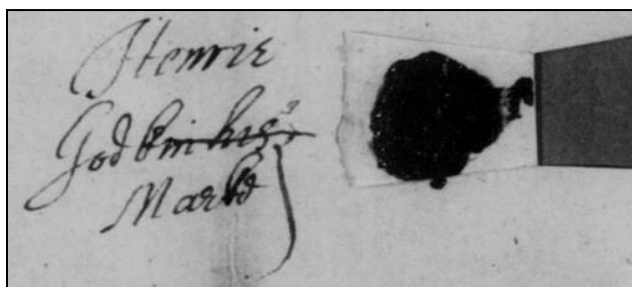 Henrie
Godbin his
Marke